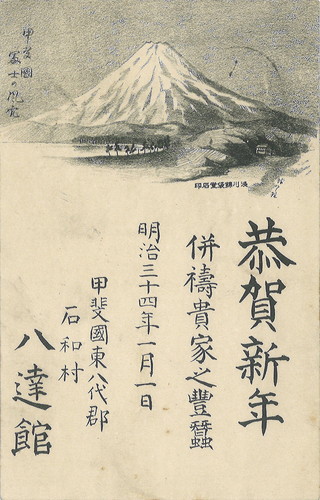 甲斐國
富士の風景
恭賀新年
併禱貴家之豐蠶
明治三十四年一月一日
甲斐國東八代郡
石和村
八達館